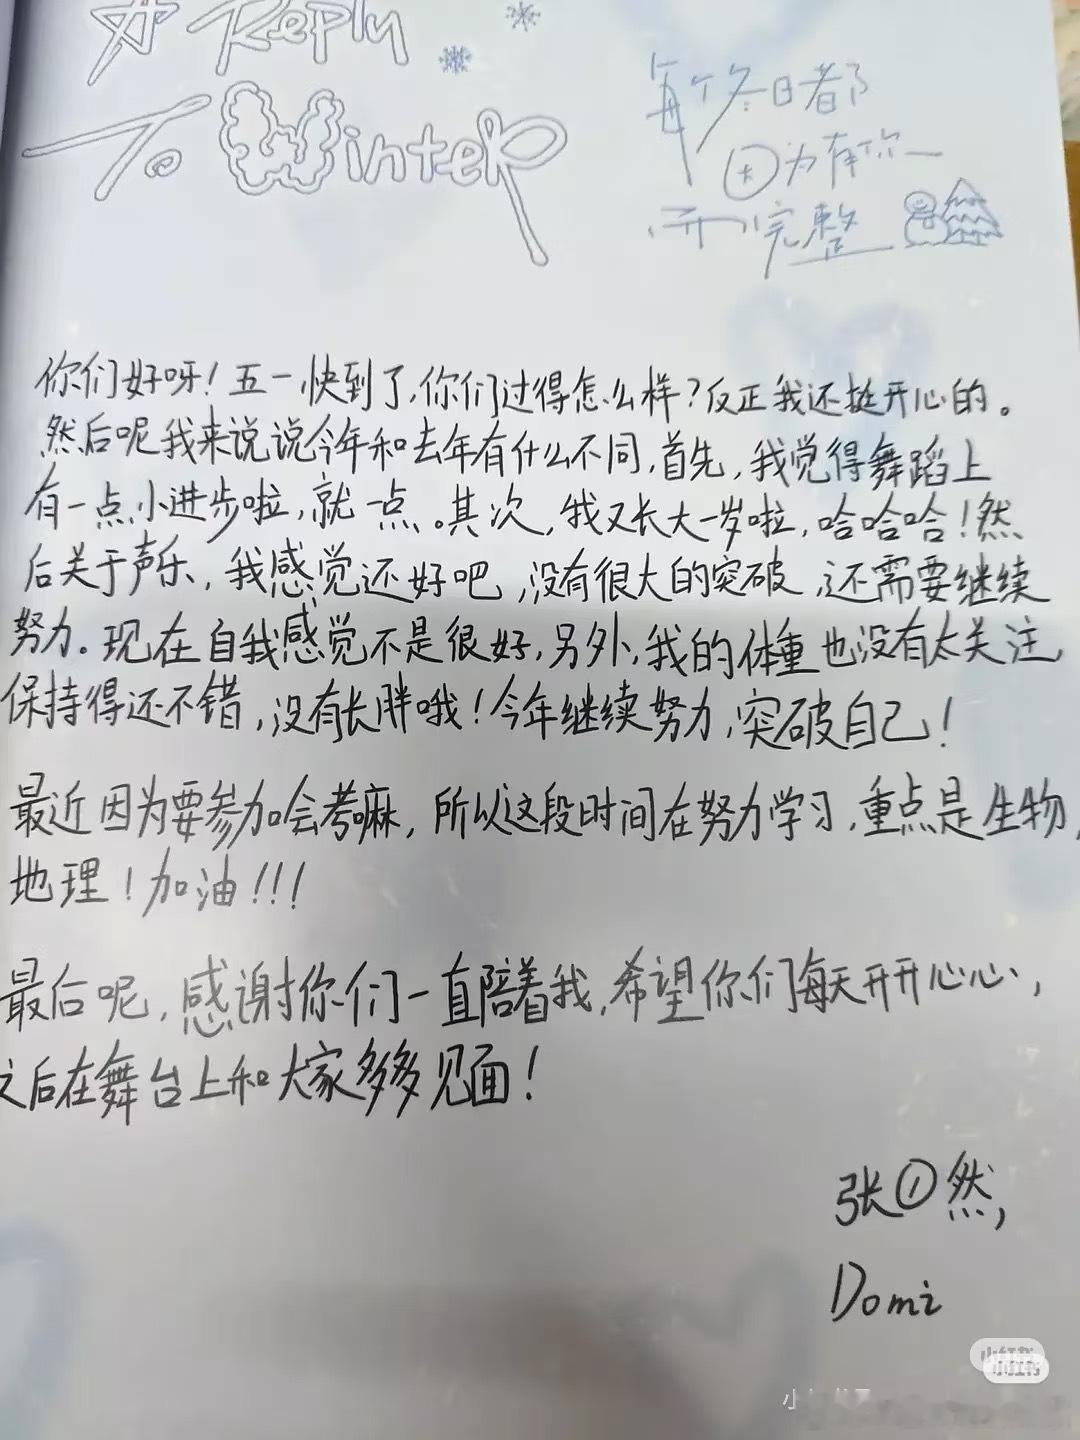 A Reply
To Winter
每个冬日都
因为有你
而完整
你们好呀！五一快到了,你们过得怎么样？反正我还挺开心的。
然后呢我来说说今年和去年有什么不同,首先,我觉得舞蹈上
有一点小进步啦,就一点。其次,我又长大一岁啦,哈哈哈！然
后关于声乐,我感觉还好吧,没有很大的突破,还需要继续
努力.现在自我感觉不是很好,另外,我的体重也没有太关注,
保持得还不错,没有长胖哦！今年继续努力,突破自己！
最近因为要参加会考嘛,所以这段时间在努力学习,重点是生物,
地理！加油!!!
最后呢,感谢你们一直陪着我,希望你们每天开开心心,
之后在舞台上和大家多多见面！
张①然,
Domi
小红书